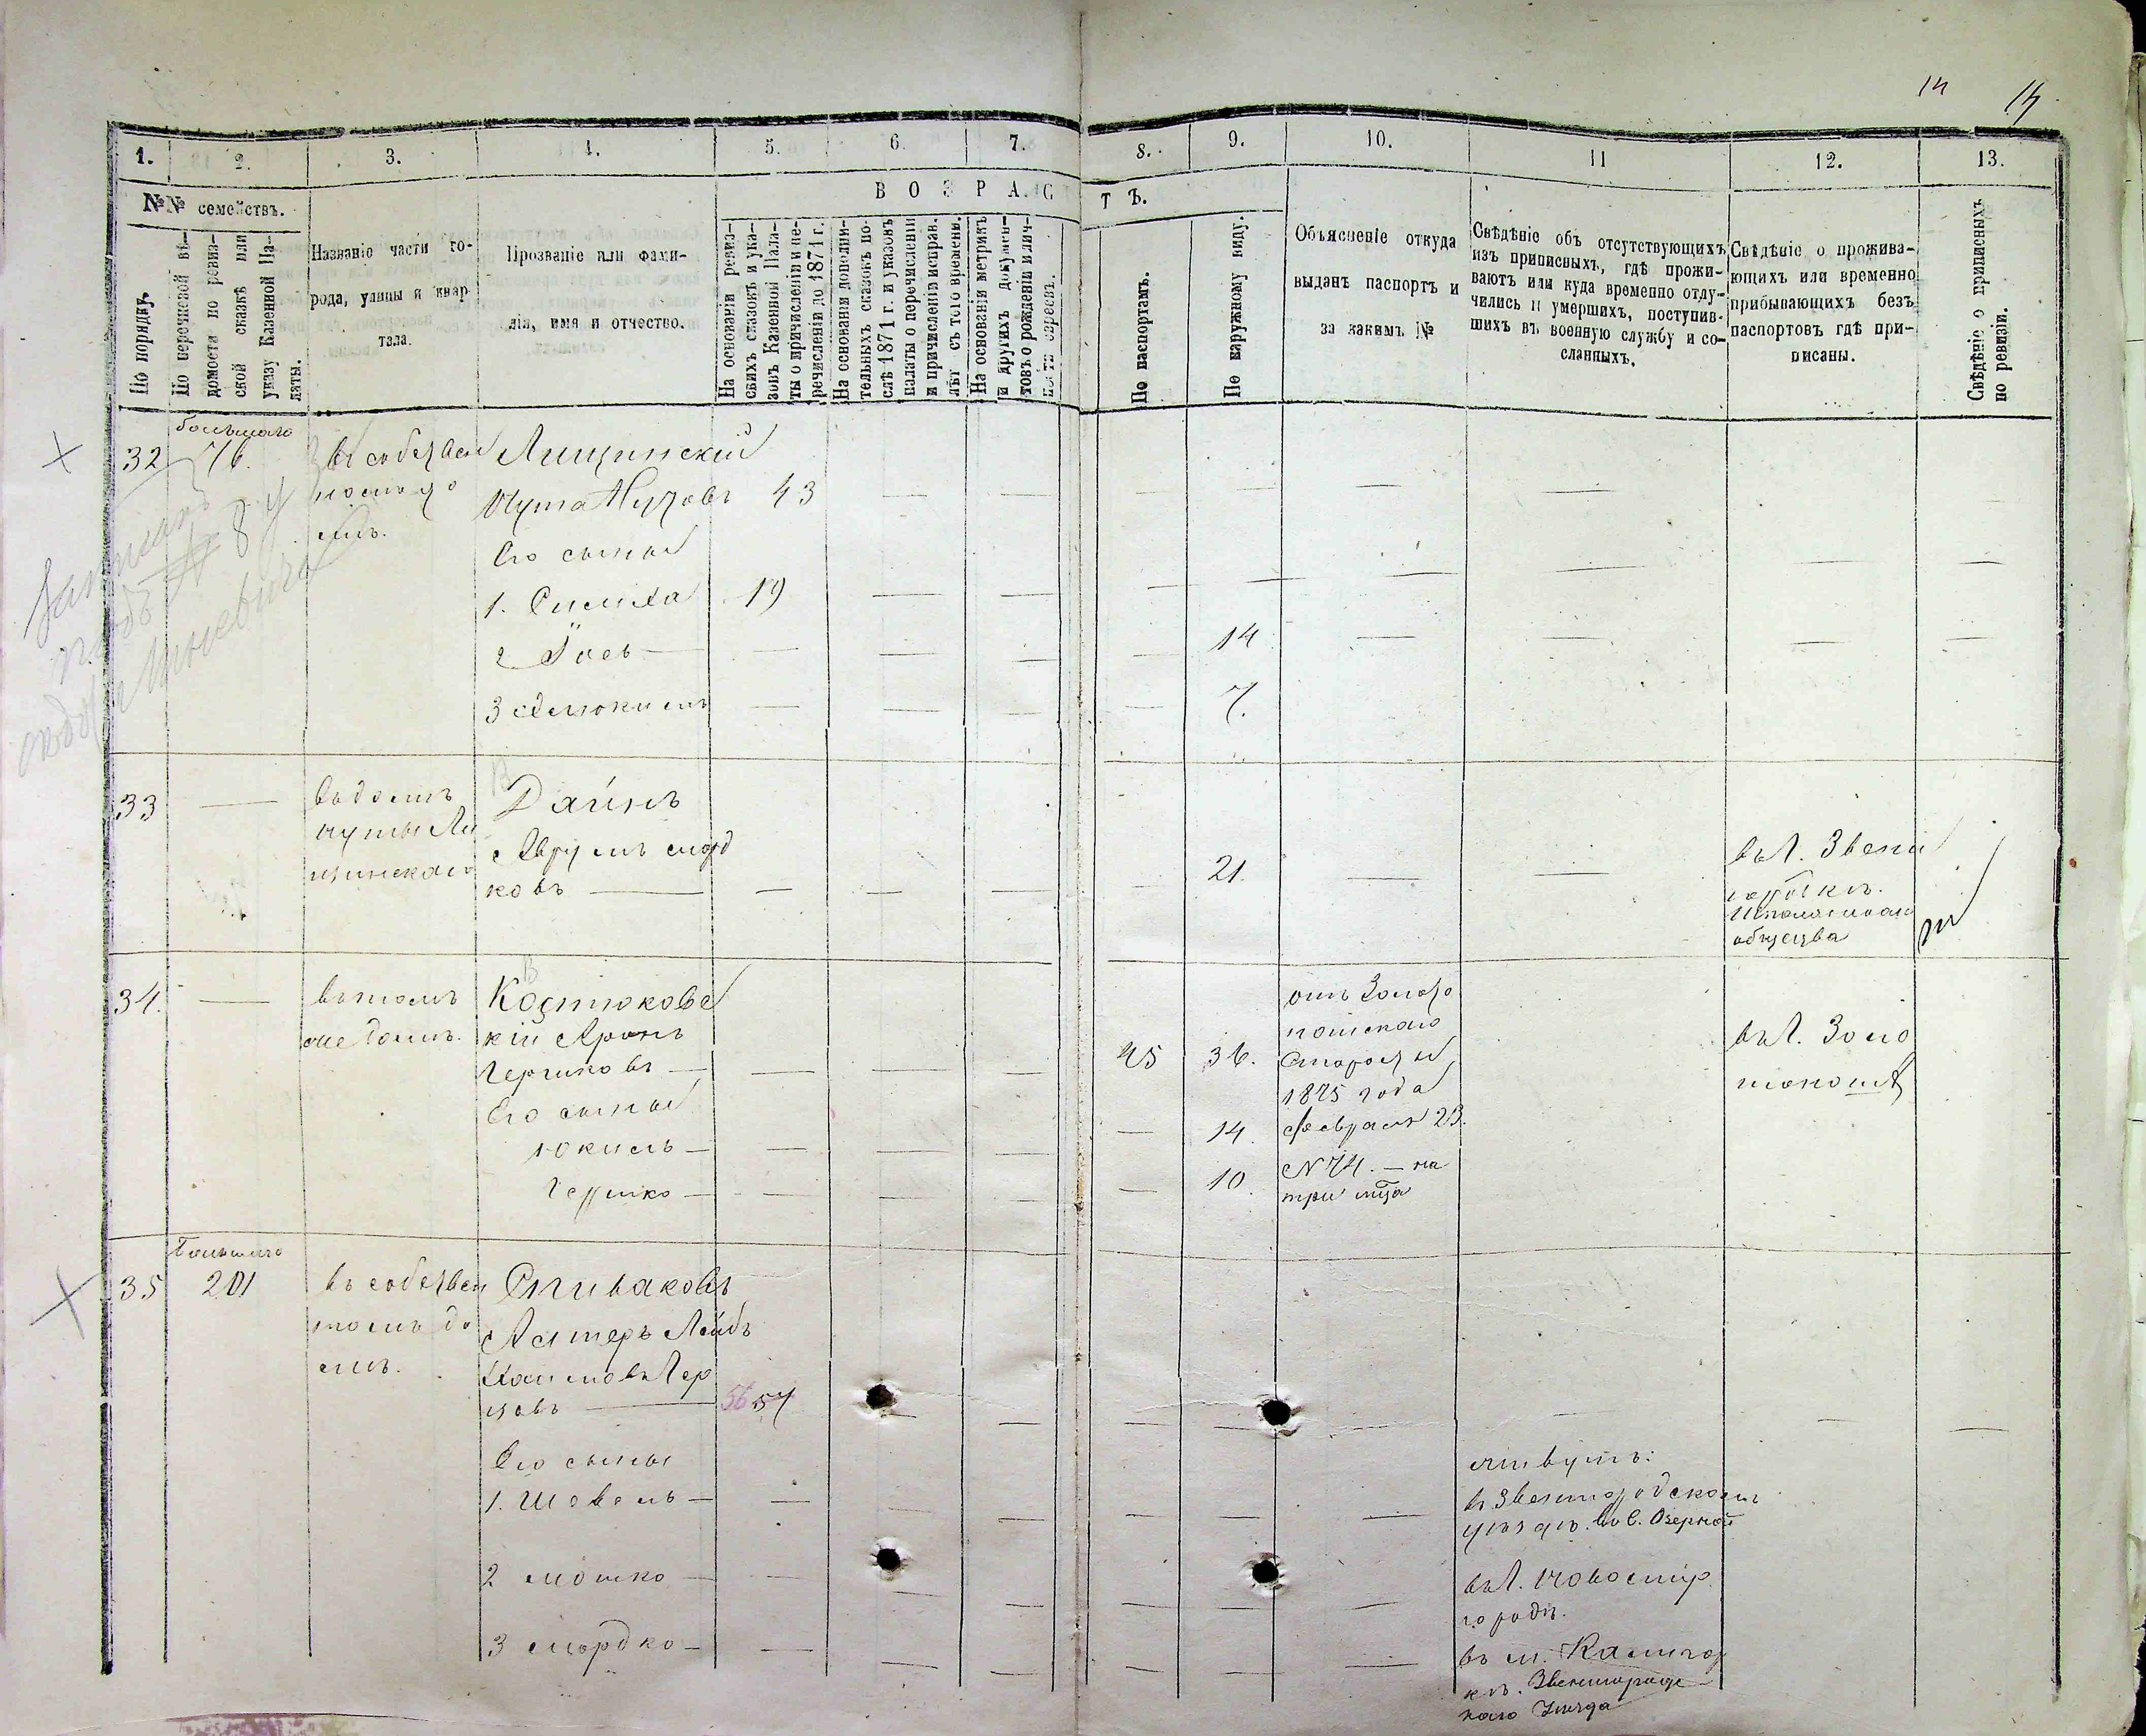 14 14
1. 2. 3. 4. 5. 6. 7. 8. 9. 10. 11 12. 13.
№№ семействъ.
По порядку.
По перечневой вѣ-
домости по ревиз-
ской сказкѣ или
указу Казенной Па-
латы.
Названіе части го-
рода, улицы и квар-
тала.
Прозваніе или фами-
лія, имя и отчество.
ВОЗРАСТЪ.
На основаніи ревиз-
скихъ сказокъ и ука-
зовъ Казенной Пала-
ты о причисленіи и пе-
речисленіи до 1871 г.
На основаніи дополни-
тельныхъ сказокъ по-
слѣ 1871 г. и указовъ
палаты о перечисленіи
и причисленіи исправ.
лѣт съ того времени.
На основаніи метрикъ
и другихъ докумен-
товъ о рожденіи и лич-
ности евреевъ.
По паспортамъ.
По наружному виду.
Объясненіе откуда
выданъ паспортъ и
за какимъ №
Свѣдѣніе объ отсутствующихъ
изъ приписныхъ, гдѣ прожи-
ваютъ или куда временно отлу-
чились и умершихъ, поступив-
шихъ въ военную службу и со-
сланныхъ.
Свѣдѣніе о прожива-
ющихъ или временно
прибывающихъ безъ
паспортовъ гдѣ при-
писаны.
Свѣдѣніе о приписныхъ
по ревизіи.
32 76. въ собствен Лищинскій
Нута 43
Его сыны
1. 19
2 Іось — 14
3 7.
33 — въ домѣ Дайнъ
Нуты Ли
щинскаго Аврумъ Морд
ковъ — 21. въ г. Звени
городкѣ.
общества
34. — въ томъ Костюковс
же домѣ. кій Аронъ
Гершковъ — 45 36.
отъ Золото
ношскаго
Старосты
1875 года
Февраля 23.
№ 74. — на
три мца
въ г. Золо
тоношѣ
Его сыны
Юкиль — 14.
Гершко — 10.
35 201 въ собствен Спиваковъ
номъ до
мѣ. Лейбъ
Хаимовъ Гер
цовъ — 56 57
Его сыны
1. Шовель —
живутъ:
въ Звенигородскомъ
уѣздѣ. въ с. Озерной
2 Мошко —
въ г. Новомир
городѣ.
3 Мордко —
въ м. Калигор
кѣ. Звенигородс
каго Уѣзда